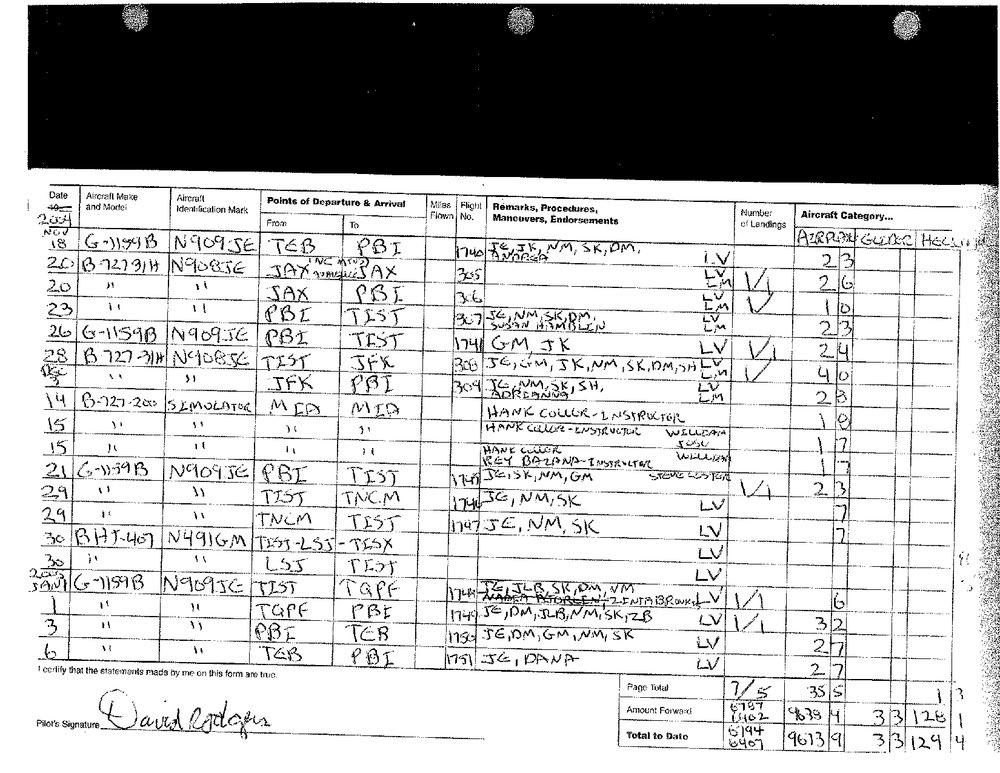 Date Aircraft Make and Model Aircraft Identification Mark Points of Departure & Arrival Miles Flown Flight No. Remarks, Procedures, Maneuvers, Endorsements Number of Landings Aircraft Category...
2004 From To AIRPLAN GLIDER
NOV 18 G-1159B N909JE TEB PBI 1740 JE, JK, NM, SK, DM, ANDREA LV 2 3
20 B-727-31H N908JE JAX JAX 305 LV LM 1/1 2 6
20 " " JAX PBI 306 LV LM 1 0
23 " " PBI TIST 307 JE, NM, SK, DM, SUSAN HAMBLIN LV LM 2 3
26 G-1159B N909JE PBI TIST 1741 GM JK LV 1/1 2 4
28 B-727-31H N908JE TIST JFK 308 JE, GM, JK, NM, SK, DM, SH LV LM 4 0
DEC 3 " " JFK PBI 309 JE, NM, SK, SH, ADRIANNA LV LM 2 8
14 B-727-200 SIMULATOR MIA MIA HANK COLLER-INSTRUCTOR 1 8
15 " " " " HANK COLLER-INSTRUCTOR WILLIAM JOSE 1 7
15 " " " " HANK COLLER REY BAZANA-INSTRUCTOR WILLIAM 1 7
21 G-1159B N909JE PBI TIST 1745 JE, SK, NM, GM STEVE LISTER 1/1 2 3
29 " " TIST TNCM 1746 JE, NM, SK LV 7
29 " " TNCM TIST 1747 JE, NM, SK LV 7
30 BHT-407 N491GM TIST-LSJ-TISX LV
30 " " LSJ TIST LV
2005 JAN 1 G-1159B N909JE TIST TQPF 1748 JE, JLB, SK, DM, NM LV 1/1 6
1 " " TQPF PBI 1749 JE, DM, JLB, NM, SK, ZB LV 1/1 3 2
3 " " PBI TEB 1750 JE, DM, GM, NM, SK LV 2 7
6 " " TEB PBI 1751 JE, DANA LV 2 7
I certify that the statements made by me on this form are true.
Page Total 7/5 35 5 1 3
Amount Forward 9638 4 3 3 128 1
Pilot's Signature David Rodgers
Total to Date 6794 6407 9673 9 3 3 129 4